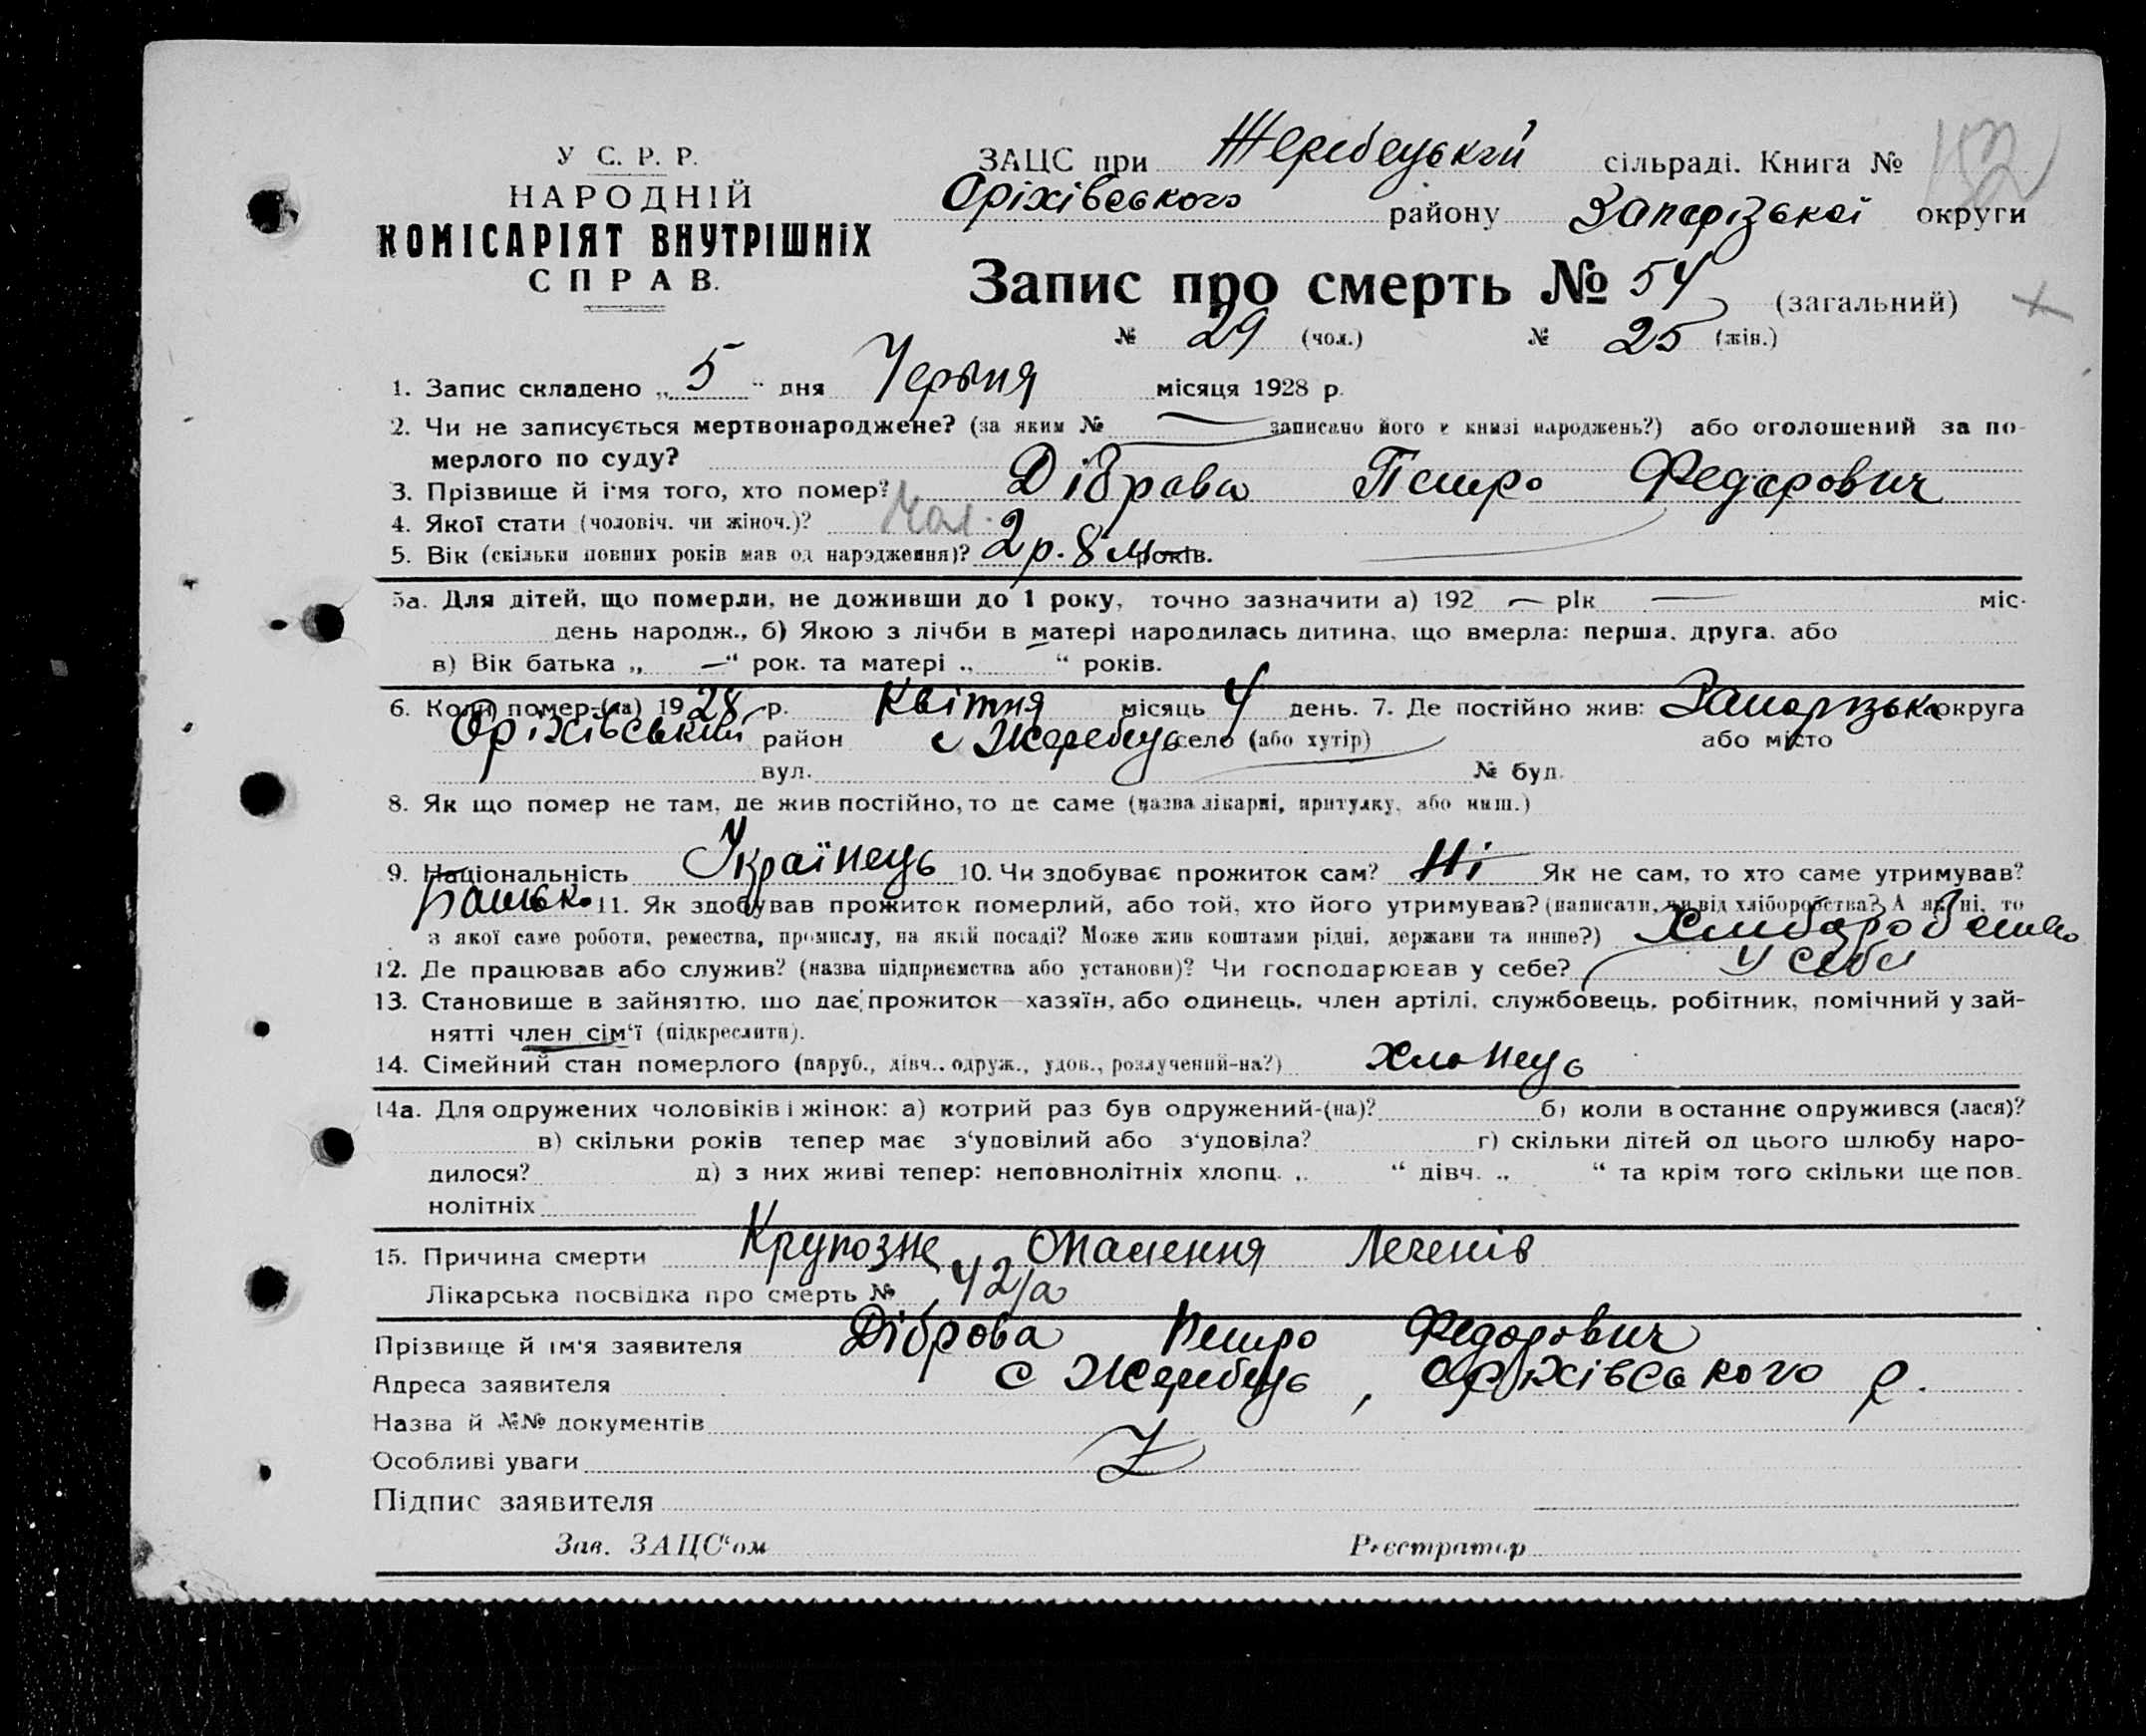 У С. Р. Р.
НАРОДНІЙ
КОМІСАРІЯТ ВНУТРІШНІХ
СПРАВ.
ЗАЦС при Жеребецькій сільраді. Книга №
152
Оріхівського району Запорізької округи
Запис про смерть № 54 (загальний)
№ 29 (чол.) № 25 (жін.)
1. Запис складено „ 5 " дня Червня місяця 1928 р.
2. Чи не записується мертвонароджене? (за яким № — записано його в книзі народжень?) або оголошений за по-
мерлого по суду?
3. Прізвище й ім'я того, хто помер? Діброва Петро Федорович
4. Якої стати (чоловіч. чи жіноч.)? Чол.
5. Вік (скільки повних років мав од народження)? 2 р. 8 м років.
5а. Для дітей, що померли, не доживши до 1 року, точно зазначити а) 192 — рік — міс.
день народж., б) Якою з лічби в матері народилась дитина, що вмерла: перша, друга, або
в) Вік батька „ — " рок. та матері „ " років.
6. Коли помер-(ла) 1928 р. Квітня місяць 4 день. 7. Де постійно жив: Запорізька округа
Оріхівський район с Жеребець село (або хутір) або місто
вул. № буд.
8. Як що помер не там, де жив постійно, то де саме (назва лікарні, притулку, або инш.)
9. Національність Українець 10. Чи здобуває прожиток сам? Ні Як не сам, то хто саме утримував?
Батько 11. Як здобував прожиток померлий, або той, хто його утримував? (написати, чи від хліборобства? А як ні, то
з якої саме роботи, ремества, промислу, на якій посаді? Може жив коштами рідні, держави та инше?) Хлиборобство
12. Де працював або служив? (назва підприємства або установи)? Чи господарював у себе? У себе
13. Становище в зайняттю, що дає прожиток—хазяїн, або одинець, член артілі, службовець, робітник, помічний у зай-
нятті член сім'ї (підкреслити).
14. Сімейний стан померлого (паруб., дівч., одруж., удов., розлучений-на?) Хлопець
14а. Для одружених чоловіків і жінок: а) котрий раз був одружений-(на)? б) коли в останнє одружився (лася)?
в) скільки років тепер має з'уповілий або з'удовіла? г) скільки дітей од цього шлюбу наро-
дилося? д) з них живі тепер: неповнолітніх хлопц. „ " дівч. „ " та крім того скільки ще пов.
нолітніх
15. Причина смерти Крупозне Опалення Легенів
Лікарська посвідка про смерть № 42/а
Прізвище й ім'я заявителя Діброва Петро Федорович
Адреса заявителя с Жеребець, Оріхівського р.
Назва й №№ документів
Особливі уваги Z
Підпис заявителя
Зав. ЗАЦС'ом Реєстратор